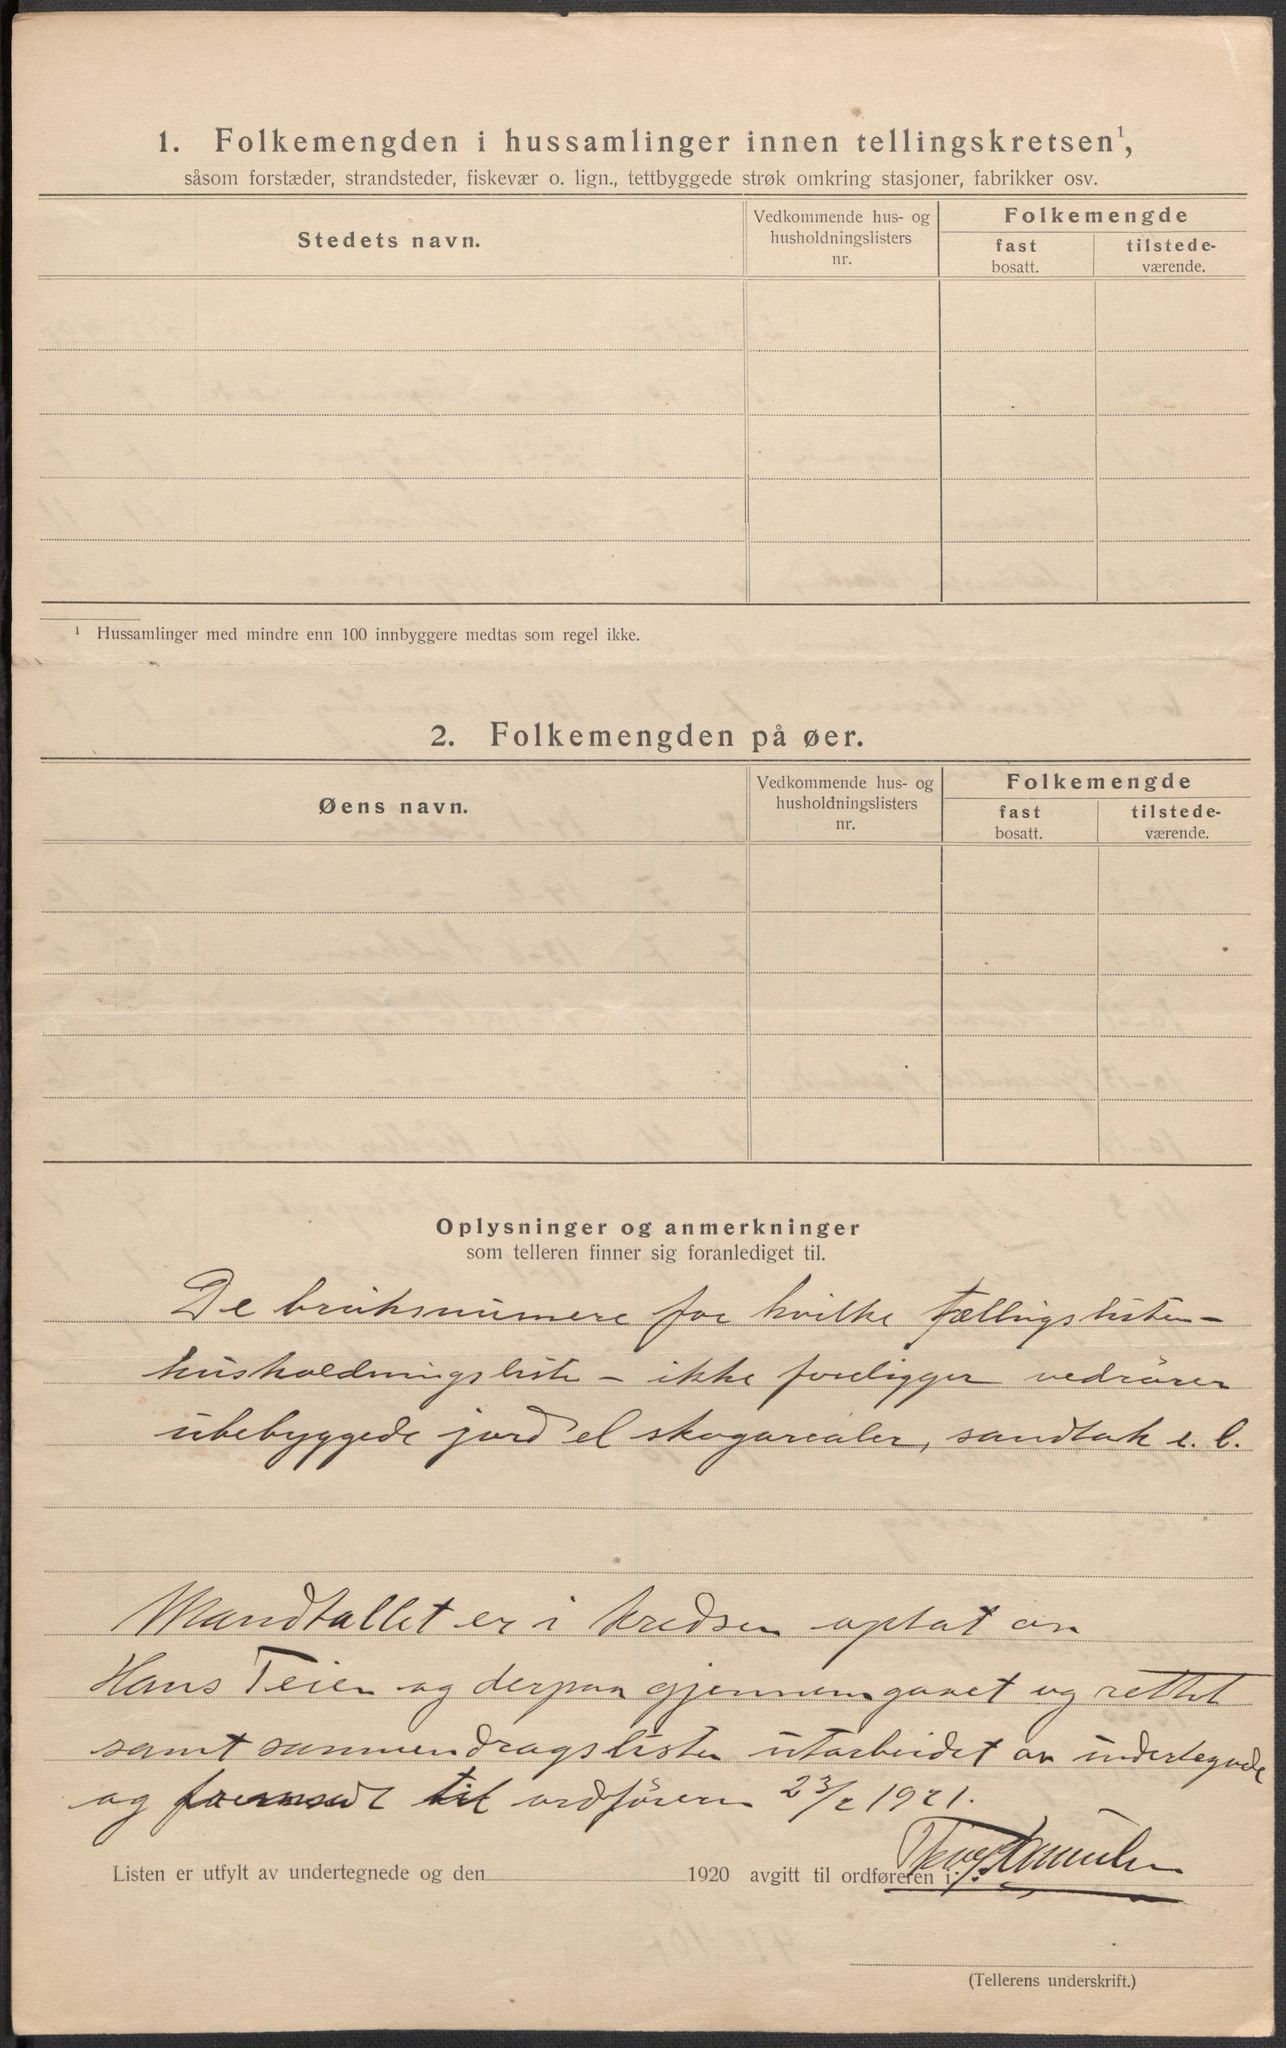 1. Folkemengden i hussamlinger innen tellingskretsen¹,
såsom forstæder, strandsteder, fiskevær o. lign., tettbyggede strøk omkring stasjoner, fabrikker osv.
Stedets navn.
Vedkommende hus- og
husholdningslisters
nr.
Folkemengde
fast
bosatt.
tilstede-
værende.
¹ Hussamlinger med mindre enn 100 innbyggere medtas som regel ikke.
2. Folkemengden på øer.
Øens navn.
Vedkommende hus- og
husholdningslisters
nr.
Folkemengde
fast
bosatt.
tilstede-
værende.
Oplysninger og anmerkninger
som telleren finner sig foranlediget til.
De bruksnumere for hvilke tællingslisten –
husholdningsliste – ikke foreligger vedrører
ubebyggede jord el skogarealer, sandtak e. l.
Mandtallet er i kredsen optat av
Hans Teien og derpaa gjennemgaaet og rettet
samt sammendragslisten utarbeidet av undertegnede
og fremsendt til ordføreren 23/2 1921.
Listen er utfylt av undertegnede og den 1920 avgitt til ordføreren i
(Tellerens underskrift.)